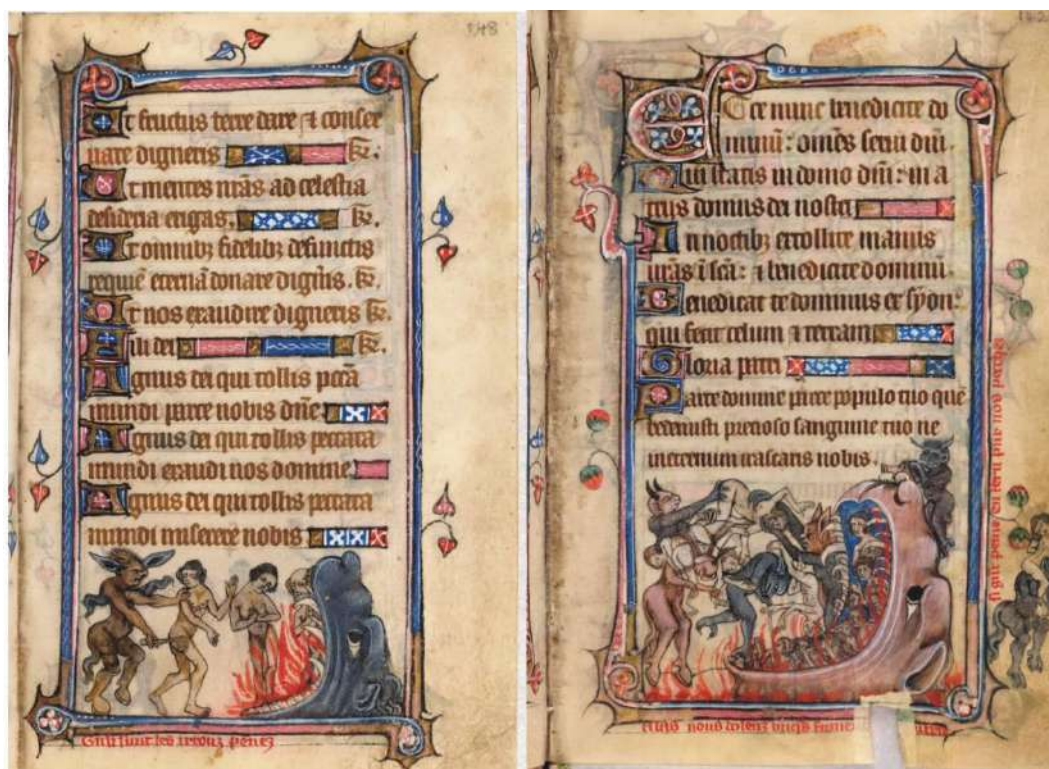 148
Ut fructus terre dare ⁊ conser
uare digneris
Ut mentes nr̃as ad celestia
desideria erigas.
Ut omnibꝫ fidelibꝫ defunctis
requiẽ eternã donare dignr̃is.
Ut nos exaudire digneris
Fili dei
Agnus dei qui tollis pcc̃a
mundi parce nobis dñe
Agnus dei qui tollis peccata
mundi exaudi nos domine
Agnus dei qui tollis peccata
mundi miserere nobis
sunt les
Ecce nunc benedicite do
minũ: om̃es serui dñi.
Qui statis in domo dñi: in a
triis domus dei nostri
In noctibꝫ extollite manus
ur̃as ĩ sc̃a: ⁊ benedicite dominũ.
Benedicat te dominus ex syon:
qui fecit celum ⁊ terram
Gloria patri
Parce domine parce populo tuo quẽ
redemisti precioso sanguine tuo ne
ineternum irascaris nobis.
nous